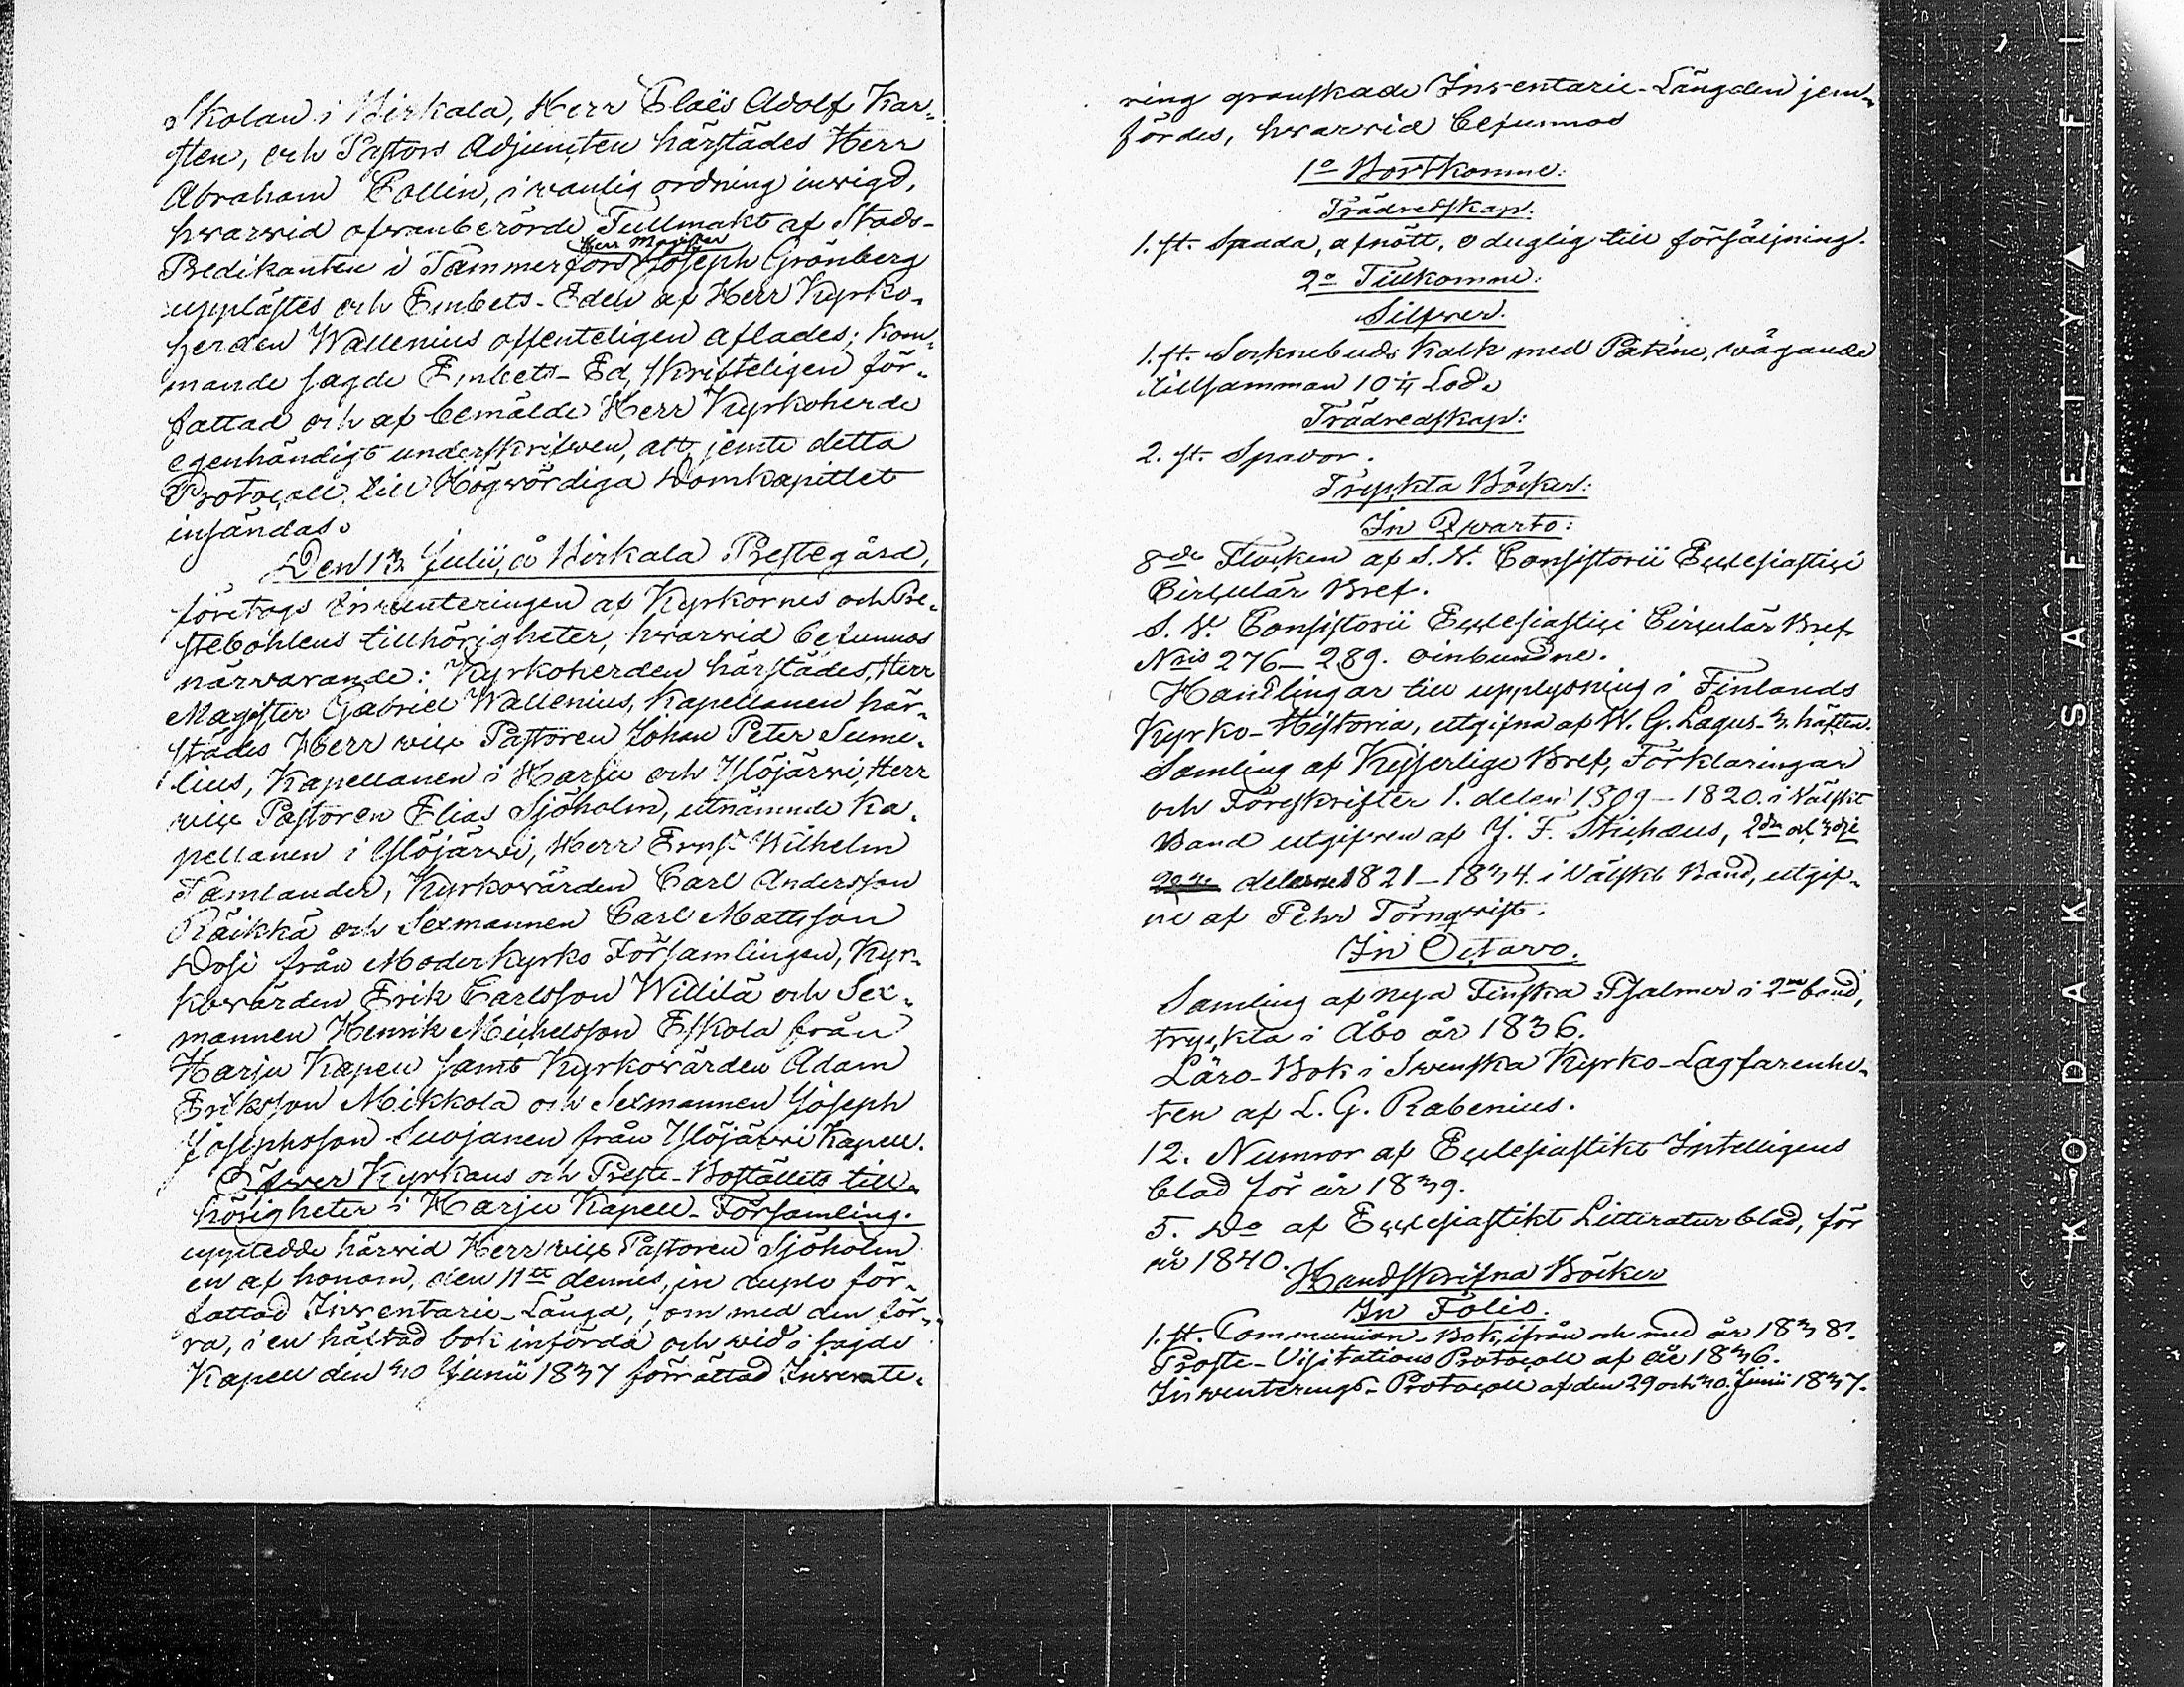 Skolan i Birkala, Herr Claës Adolf Kar-
sten, och Pastors Adjuncten härstädes Herr
Abraham Collin, i wanlig ordning inwigd,
hwarwid ofwanberörde Fullmakt af Stads-
Herr Magister
Predikanten i Tammerfors Joseph Grönberg
upplästes och Embets-Eden af Herr Kyrko-
herden Wallenius offenteligen aflades; kom-
mande sagde Embets-Ed, skrifteligen för-
fattad och af bemälde Herr Kyrkoherde
egenhändigt underskrifwen, att jemte detta
Protocoll till Högwördiga Domkapitlet
insändas.
Den 13 Julii, å Birkala Prestegård,
företogs Inwenteringen af Kyrkornes och Pre-
stebohlens tillhörigheter, hwarwid befunnos
närwarande: Kyrkoherden härstädes, Herr
Magister Gabriel Wallenius, Kapellanen här-
städes Herr vice Pastoren Johan Peter Sume-
lius, Kapellanen i Harju och Ylöjärwi, Herr
vice Pastoren Elias Sjöholm, utnämnde Ka-
pellanen i Ylöjärwi, Herr Ernst Wilhelm
Tamlander, Kyrkowärden Carl Andersson
Räikkä och Sexmannen Carl Mattsson
Dosi från Moderkyrko Församlingen, Kyr-
kowärden Erik Carlsson Willilä och Sex-
mannen Henrik Michelsson Eskola från
Harju Kapell samt Kyrkowärden Adam
Eriksson Mikkola och Sexmannen Joseph
Josephsson Suojanen från Ylöjärwi Kapell.
Öfwer Kyrkans och Preste-Boställets till-
hörigheter i Harju Kapell-Församling.
uppteedde härwid Herr vice Pastoren Sjöholm
en af honom, den 11te dennes, in duplo för-
fattad Inventarie-Längd, som med den för-
ra, i en häftad bok införda och wid i sagde
Kapell den 30 Junii 1837 förrättad Inwente-
ring granskade Inventarie-Längden jem-
fördes, hwarwid befunnos
1o Bortkomne:
Trädredskap:
1. st. Spada, afnött, oduglig till försäljning.
2o Tillkomne:
Silfwer.
1. st. Socknebuds Kalk med Paténe, wägande
tillsamman 10 1/4 Lod.
Trädredskap:
2. st. Spador.
Tryckta Böcker:
In Qwarto:
8de Flocken af S. V. Consistorii Ecclesiastici
Circulär Bref.
S. V. Consistorii Ecclesiastici Circulär Bref
Nris 276–289. oinbundne.
Handlingar till upplysning i Finlands
Kyrko-Historia, utgifna af W. G. Lagus. 3. häften.
Samling af Kejserlige Bref, Förklaringar
och Föreskrifter 1. delen 1809–1820. i Välskt
Band utgifwen af J. F. Stichæus, 2dra och 3dje
delarne 1821–1834. i Välskt Band, utgif-
ne af Pehr Törnqwist.
In Octavo.
Samling af nya Finska Psalmer i 2ne band,
tryckta i Åbo år 1836.
Läro-Bok i Swenska Kyrko-Lagfarenhe-
ten af L. G. Rabenius.
12. Numror af Ecclesiastikt Intelligens
blad för år 1839.
5. Do af Ecclesiastikt Litteratur blad, för
år 1840.
Handskrifna Böcker
In Folio.
1. st. Communion-Bok, ifrån och med år 1838.
Proste-Visitations Protocoll af år 1836.
Inwenterings-Protocoll af den 29 och 30. Junii 1837.
KODAK SAFETY FI